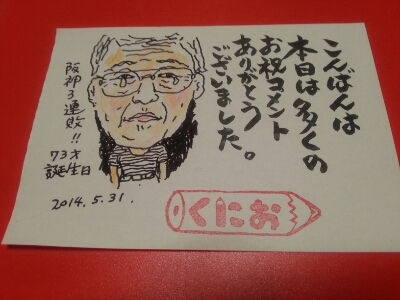 こんばんは
本日は多くの
お祝コメント
ありがとう
ございました。
阪神3連敗!!
73才
誕生日
2014.5.31.
くにお